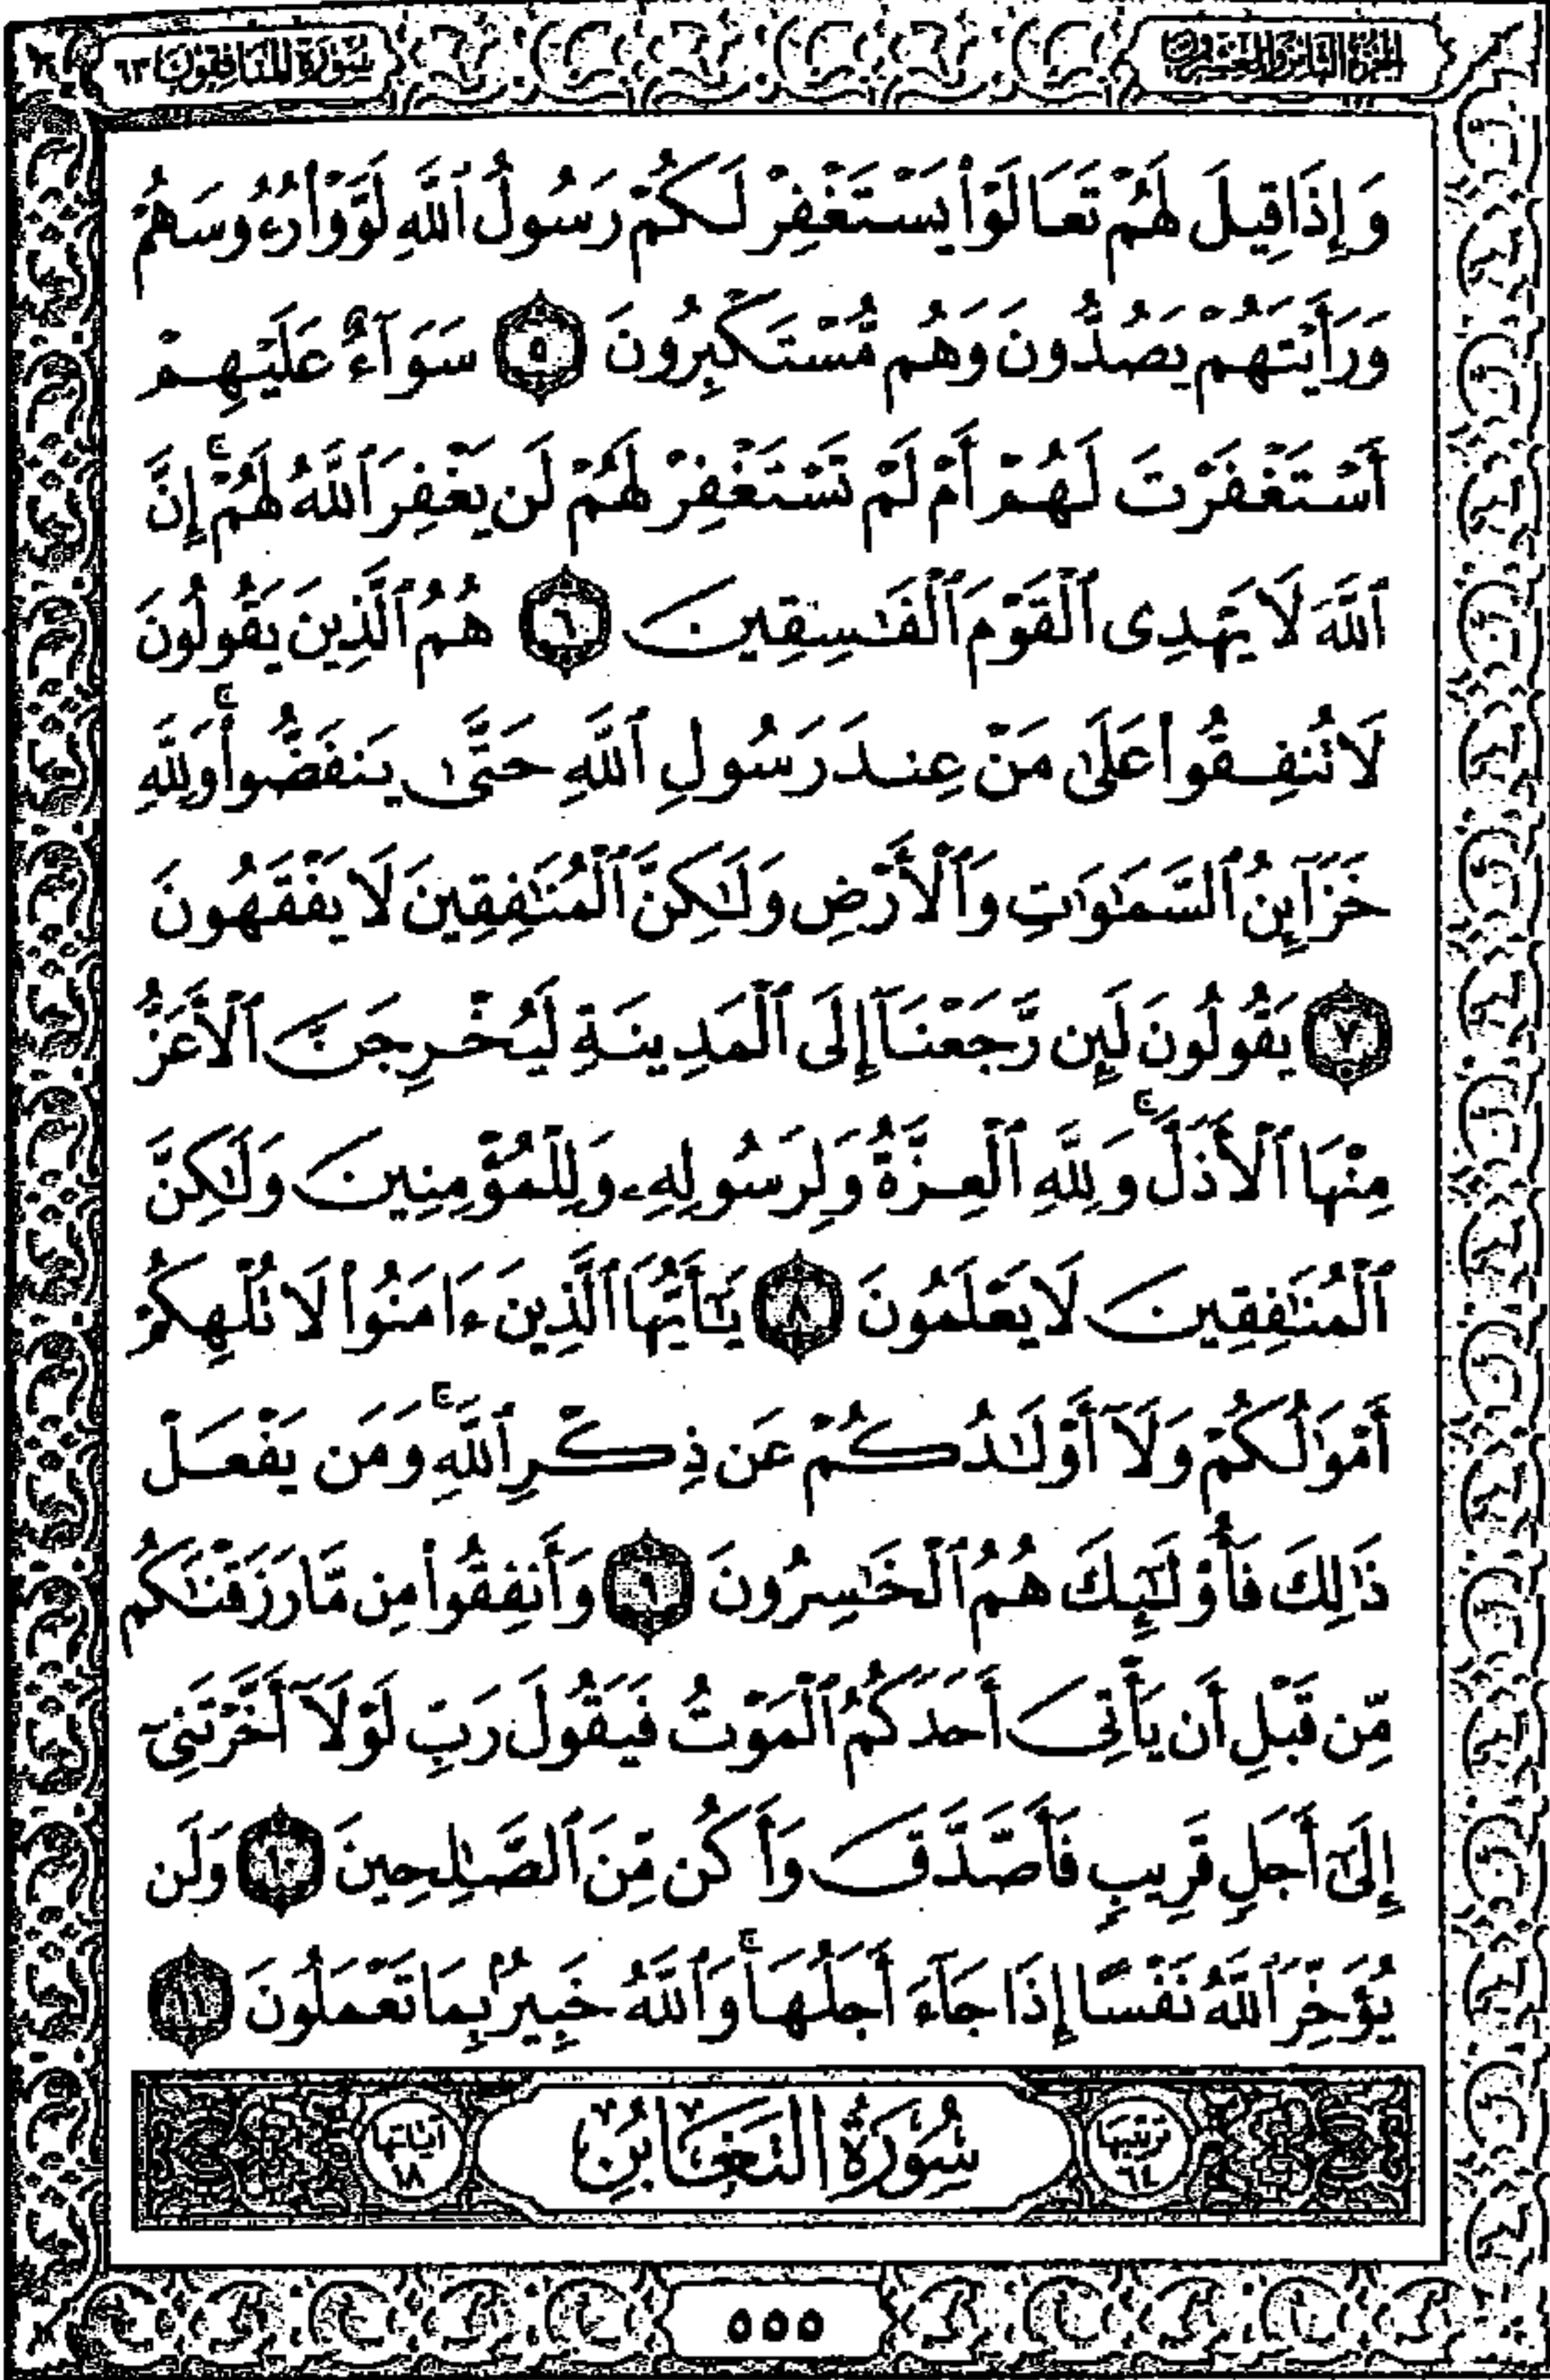 الجزء الثامن والعشرون
سورة المنافقون ٦٣
وَإِذَا قِيلَ لَهُمْ تَعَالَوْا۟ يَسْتَغْفِرْ لَكُمْ رَسُولُ ٱللَّهِ لَوَّوْا۟ رُءُوسَهُمْ
وَرَأَيْتَهُمْ يَصُدُّونَ وَهُم مُّسْتَكْبِرُونَ ٥ سَوَآءٌ عَلَيْهِمْ
أَسْتَغْفَرْتَ لَهُمْ أَمْ لَمْ تَسْتَغْفِرْ لَهُمْ لَن يَغْفِرَ ٱللَّهُ لَهُمْ ۚ إِنَّ
ٱللَّهَ لَا يَهْدِى ٱلْقَوْمَ ٱلْفَـٰسِقِينَ ٦ هُمُ ٱلَّذِينَ يَقُولُونَ
لَا تُنفِقُوا۟ عَلَىٰ مَنْ عِندَ رَسُولِ ٱللَّهِ حَتَّىٰ يَنفَضُّوا۟ ۚ وَلِلَّهِ
خَزَآئِنُ ٱلسَّمَـٰوَٰتِ وَٱلْأَرْضِ وَلَـٰكِنَّ ٱلْمُنَـٰفِقِينَ لَا يَفْقَهُونَ
٧ يَقُولُونَ لَئِن رَّجَعْنَآ إِلَى ٱلْمَدِينَةِ لَيُخْرِجَنَّ ٱلْأَعَزُّ
مِنْهَا ٱلْأَذَلَّ ۚ وَلِلَّهِ ٱلْعِزَّةُ وَلِرَسُولِهِۦ وَلِلْمُؤْمِنِينَ وَلَـٰكِنَّ
ٱلْمُنَـٰفِقِينَ لَا يَعْلَمُونَ ٨ يَـٰٓأَيُّهَا ٱلَّذِينَ ءَامَنُوا۟ لَا تُلْهِكُمْ
أَمْوَٰلُكُمْ وَلَآ أَوْلَـٰدُكُمْ عَن ذِكْرِ ٱللَّهِ ۚ وَمَن يَفْعَلْ
ذَٰلِكَ فَأُو۟لَـٰٓئِكَ هُمُ ٱلْخَـٰسِرُونَ ٩ وَأَنفِقُوا۟ مِن مَّا رَزَقْنَـٰكُم
مِّن قَبْلِ أَن يَأْتِىَ أَحَدَكُمُ ٱلْمَوْتُ فَيَقُولَ رَبِّ لَوْلَآ أَخَّرْتَنِىٓ
إِلَىٰٓ أَجَلٍ قَرِيبٍ فَأَصَّدَّقَ وَأَكُن مِّنَ ٱلصَّـٰلِحِينَ ١٠ وَلَن
يُؤَخِّرَ ٱللَّهُ نَفْسًا إِذَا جَآءَ أَجَلُهَا ۚ وَٱللَّهُ خَبِيرٌۢ بِمَا تَعْمَلُونَ ١١
ترتيبها ٦٤
سُورَةُ التَّغَابُنِ
آياتها ١٨
٥٥٥